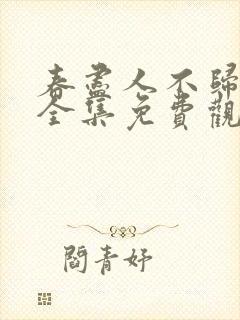 春盡人不歸
全集免費觀
閻青妤